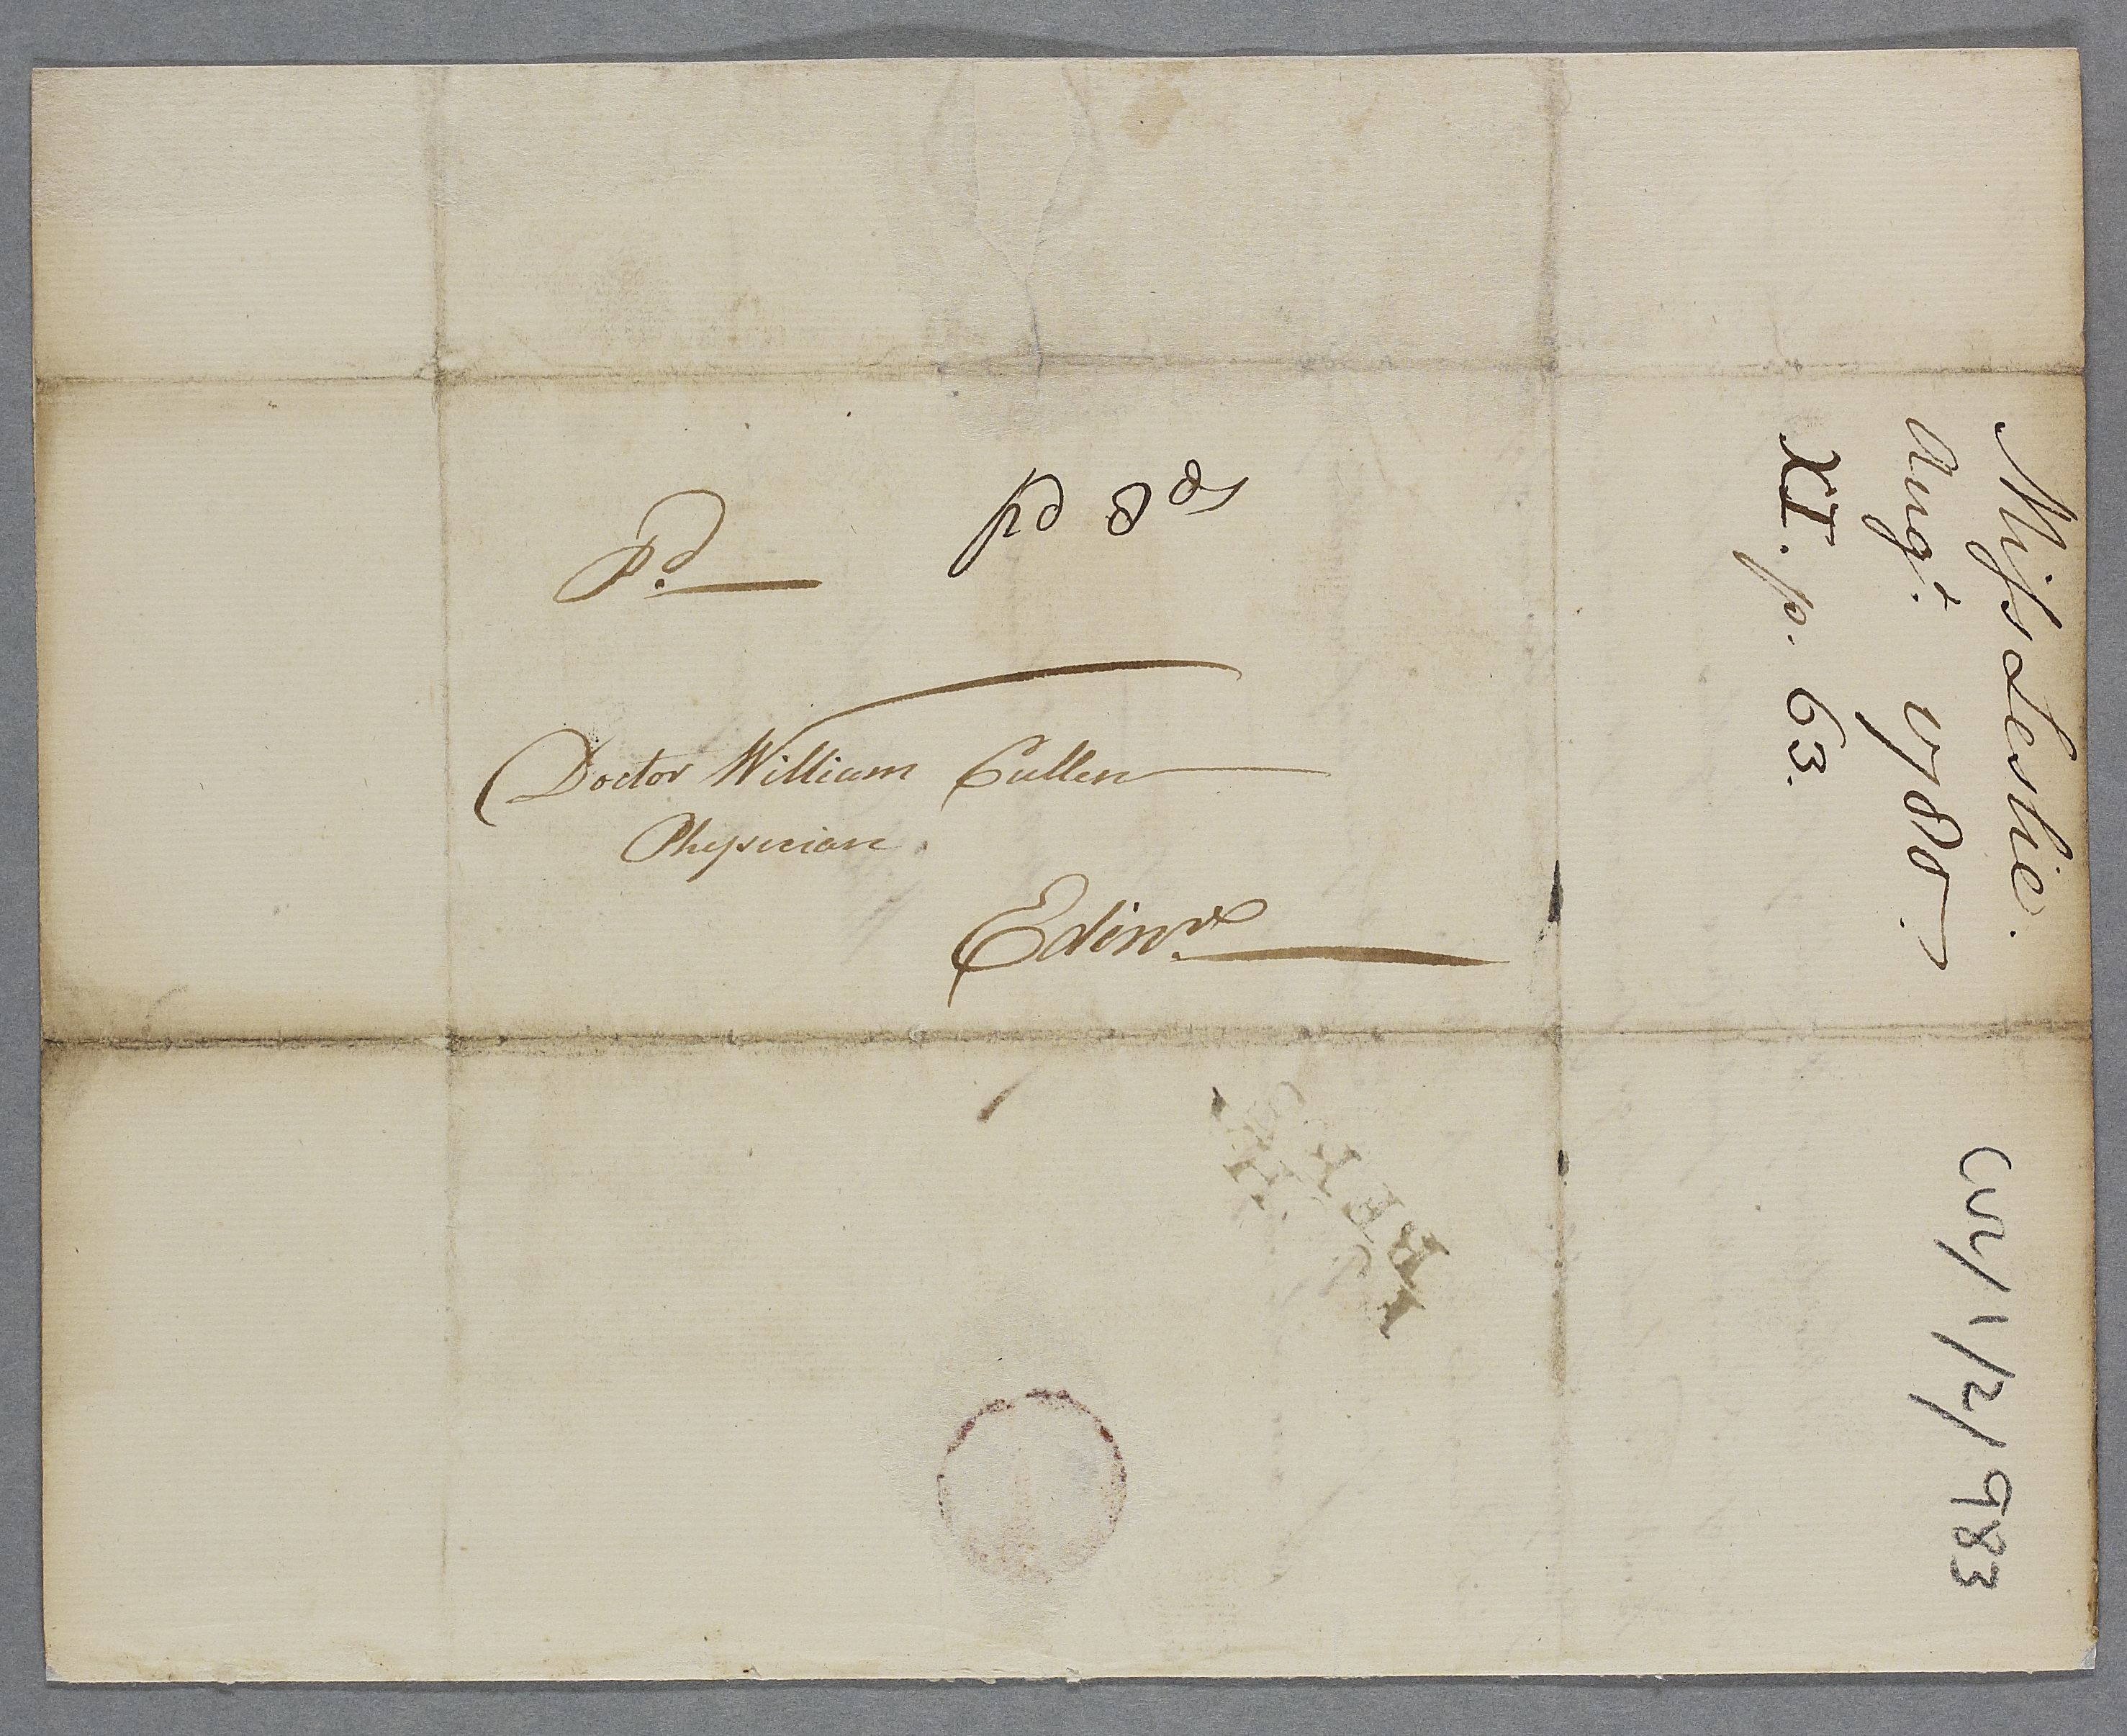 Pd. pd 8ds
Doctor William Cullen
Physician.
Edinr.
Miss Leslie.
Augt. 1780
XI. p. 63.
CUL/1/2/983